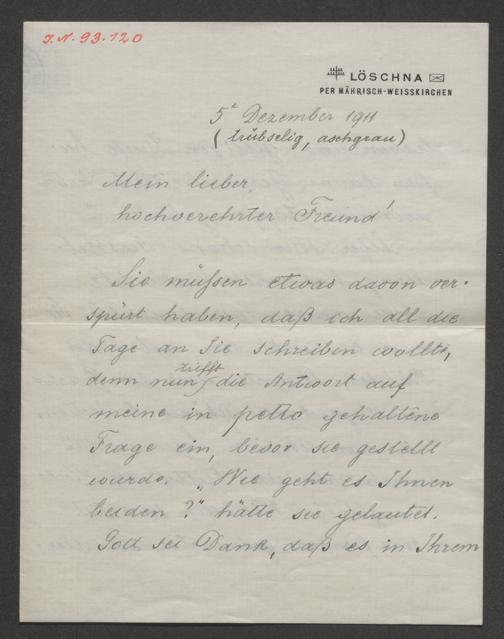 J. N. 93.120
LÖSCHNA
PER MÄHRISCH-WEISSKIRCHEN
5t Dezember 1911
(trübselig, aschgrau)
Mein lieber,
hochverehrter Freund!
Sie müßen etwas davon ver-
spürt haben, daß ich all die
Tage an Sie schreiben wollte,
denn nun trifft die Antwort auf
meine in petto gehaltene
Frage ein, bevor sie gestellt
wurde. „Wie geht es Ihnen
beiden?" hätte sie gelautet.
Gott sei Dank, daß es in Ihrem